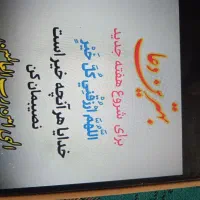 بهترین دعا
برای شروع هفته جدید
اللَّهُمَّ ارْزُقْنِي كُلَّ خَيْرٍ
خدایا هر آنچه خیر است
نصیبمان کن